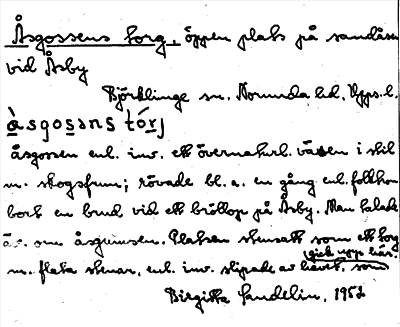 Åsgossens torg, öppen plats på sandåsen
vid Åsby
Björklinge sn. Norunda hd. Upps. l.
àsgosans tórj
åsgossen enl. inv. ett övernaturl. väsen i stil
m. skogsfrun; rövade bl. a. en gång enl. folktron
bort en brud vid ett bröllop på Åsby. Man talade
äv. om åsgumsen. Platsen stensatt som ett torg
m. flata stenar, enl. inv. slipade av havet, som
gick upp här.
Birgitta Sandelin, 1952